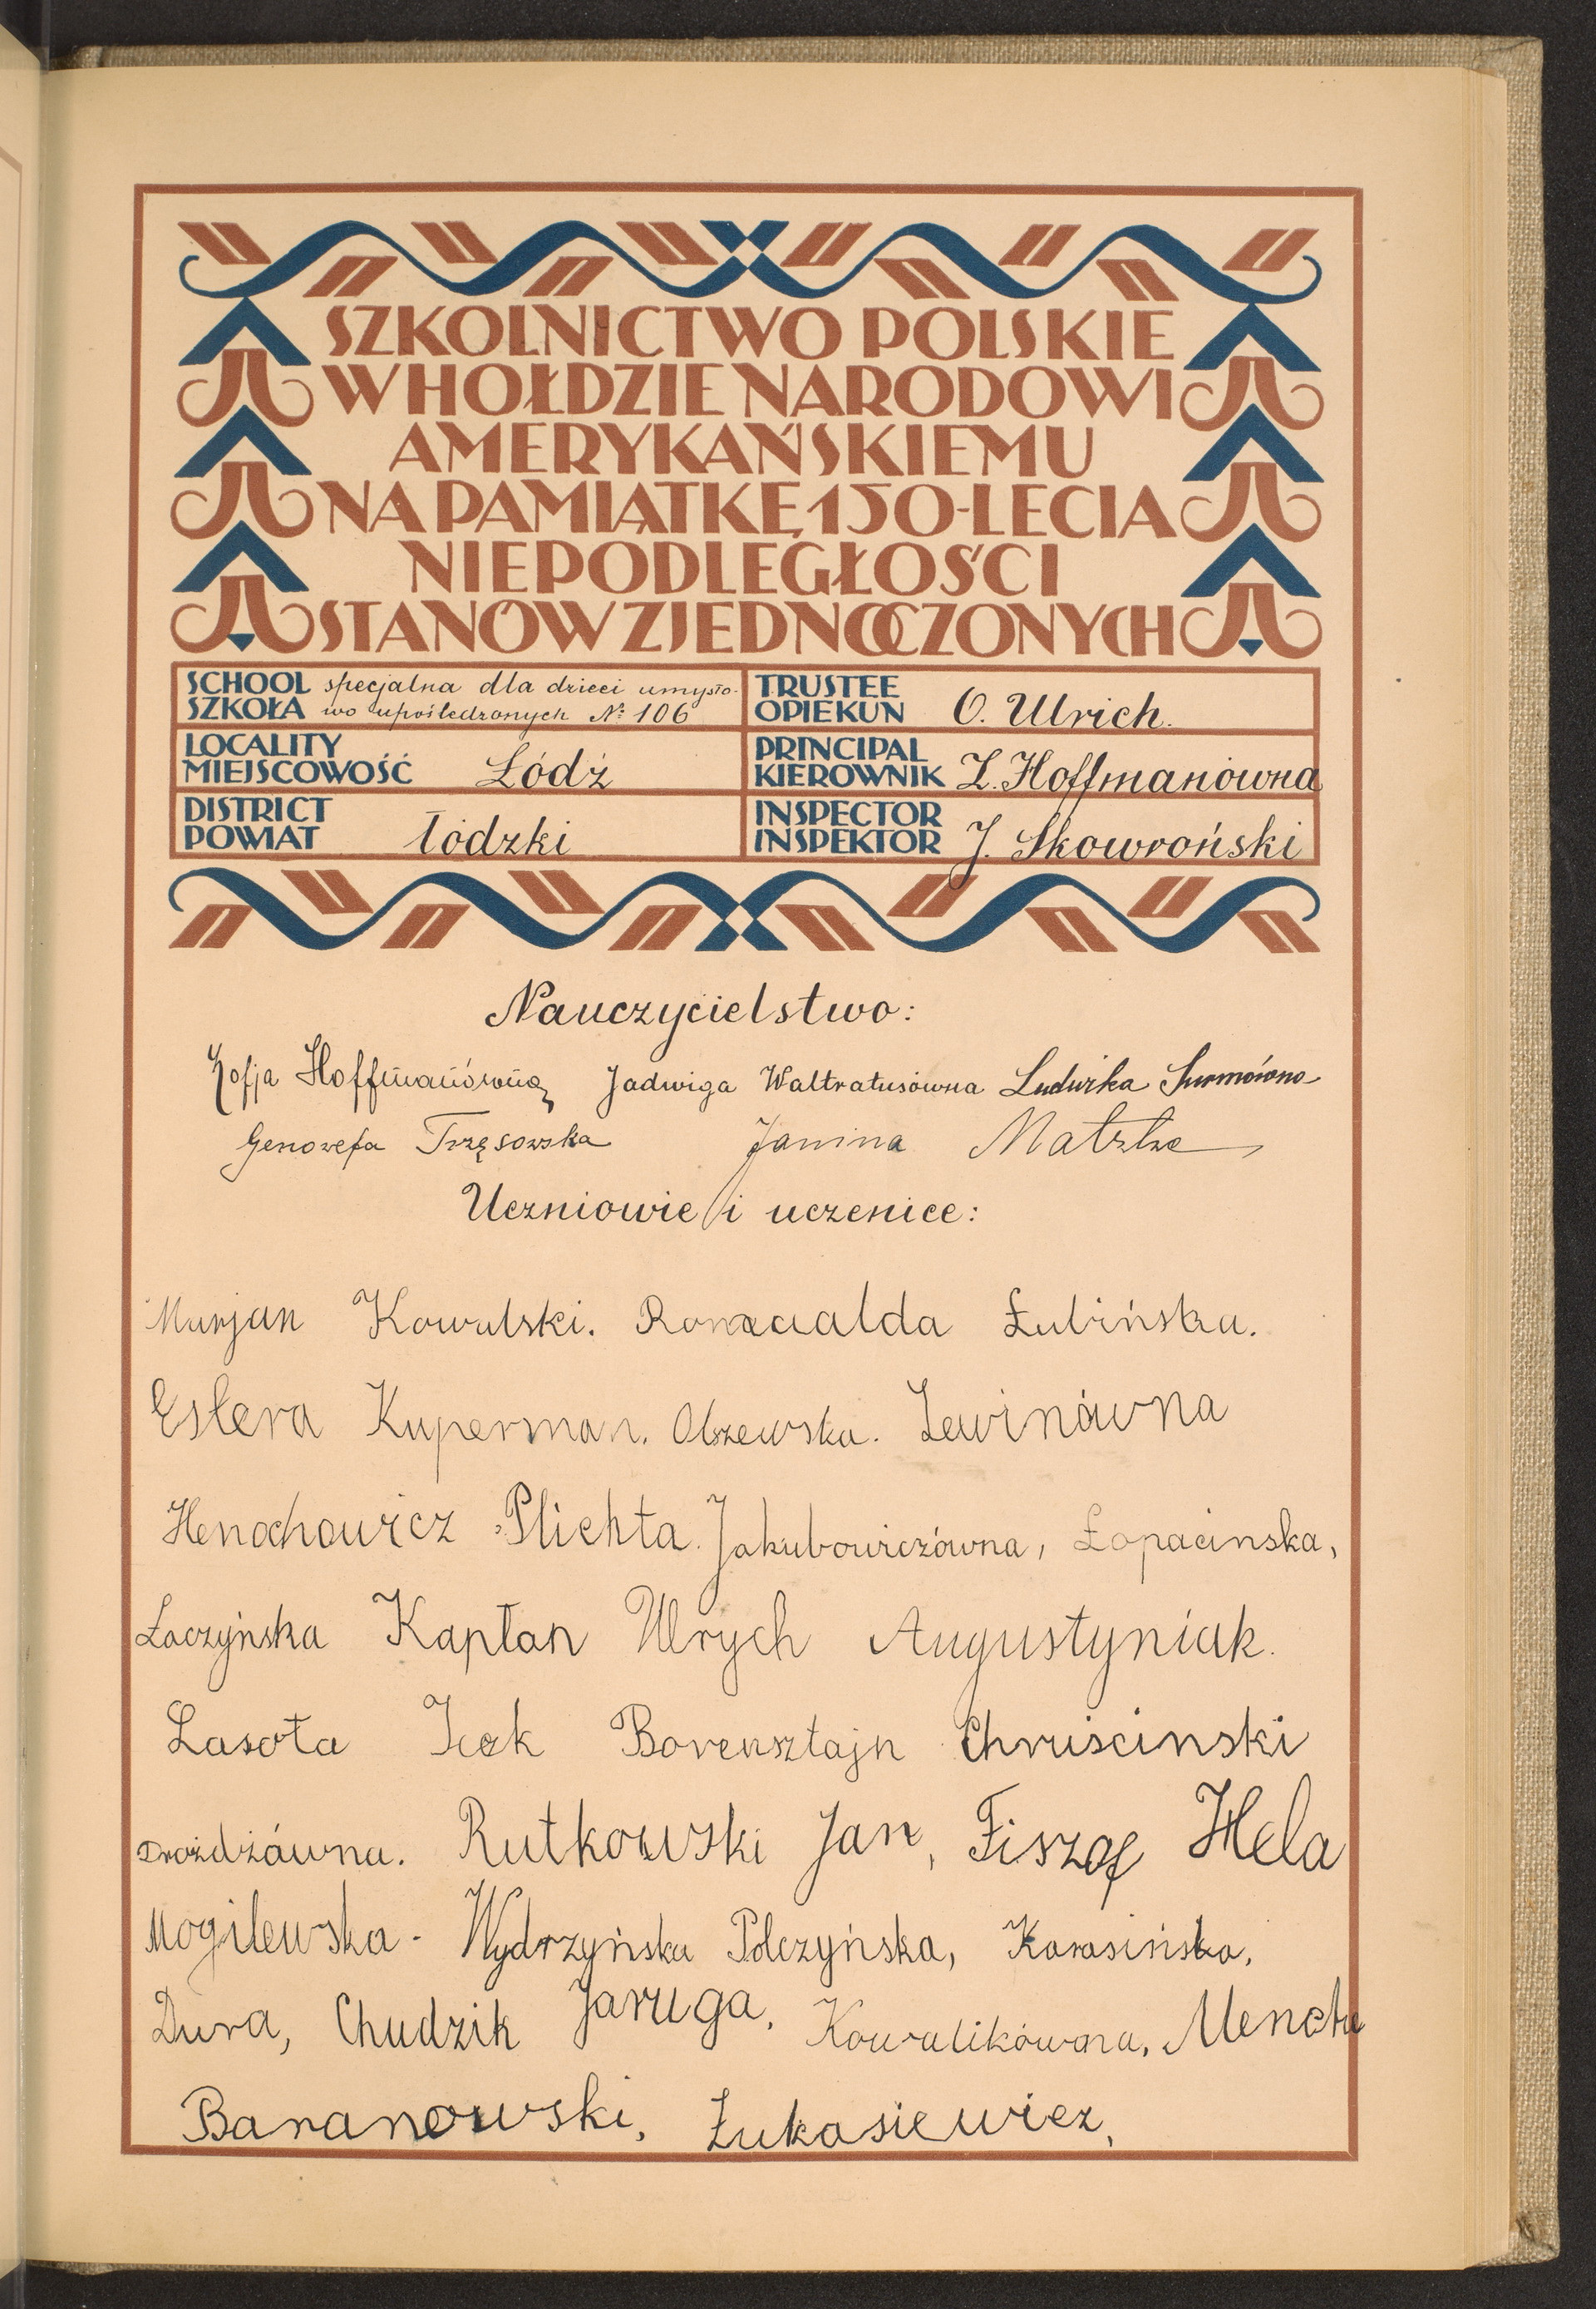 SZKOLNICTWO POLSKIE
W HOŁDZIE NARODOWI
AMERYKAŃSKIEMU
NA PAMIĄTKĘ 150-LECIA
NIEPODLEGŁOŚCI
STANÓW ZJEDNOCZONYCH
SCHOOL SZKOŁA specjalna dla dzieci umysło-
wo upośledzonych № 106
TRUSTEE OPIEKUN O. Ulrich.
LOCALITY MIEJSCOWOŚĆ Łódź
PRINCIPAL KIEROWNIK Z. Hoffmanówna
DISTRICT POWIAT łódzki
INSPECTOR INSPEKTOR J. Skowroński
Nauczycielstwo:
Zofja Hoffmanówna Jadwiga Waltratusówna Ludwika Surmówna
Genowefa Trzęsowska Janina
Uczniowie i uczenice:
Marjan Kowalski. Romualda Łubińska.
Estera Kuperman. Olszewska. Lewinówna
Henochowicz Plichta. Jakubowiczówna, Łopacinska,
Łaczyńska Kapłan Ulrych Augustyniak.
Lasota Icek Borensztajn Chruscinski
Drożdżówna. Rutkowski Jan, Fiszof Hela
Mogilewska - Wydrzyńska Polczyńska, Karasińska,
Dura, Chudzik Jaruga, Kowalikówna, Menche
Baranowski, Łukasiewicz,